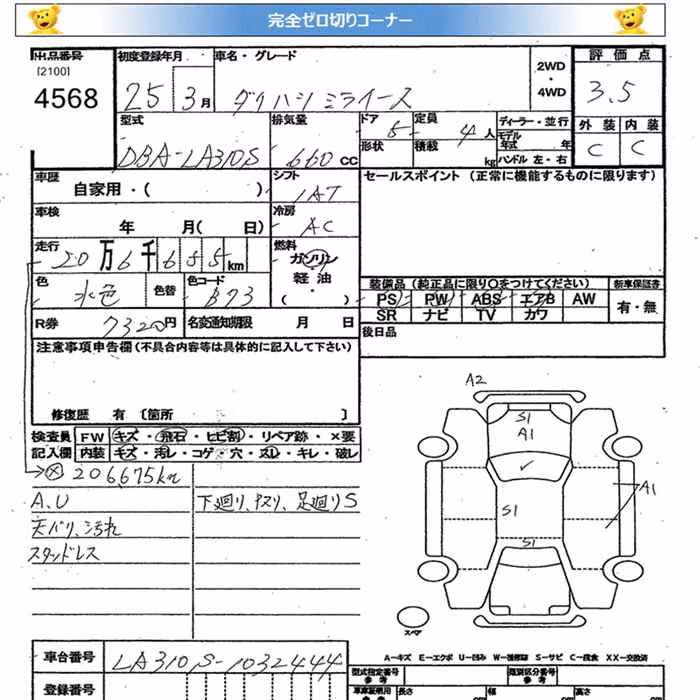 完全ゼロ切りコーナー
出品番号 初度登録年月 車名・グレード 2WD・4WD 評価点
[2100]
4568 25 3月 ダイハツ ミライース 3.5
型式 排気量 ドア 5 定員 4人 ディーラー・並行 外装 内装
モデル年式 年
DBA-LA310S 660cc 形状 積載 kg ハンドル 左・右 C C
車歴 自家用・( ) シフト IAT セールスポイント (正常に機能するものに限ります)
車検 年 月( 日) 冷房 AC
走行 20万6千655km 燃料 ガソリン
軽油
( )
色 水色 色替 色コード B73 装備品 (純正品に限り○をつけてください) 新車保証書
PS PW ABS エアB AW 有・無
R券 7320円 名変通知期限 月 日 SR ナビ TV カワ
後日品
注意事項申告欄 (不具合内容等は具体的に記入して下さい)
修復歴 有 [箇所 ]
検査員 FW キズ・飛石・ヒビ割・リペア跡・×要
記入欄 内装 キズ・汚レ・コゲ・穴・スレ・キレ・破レ
206,675km
A.U 下廻り、サスリ、足廻りS
天バリ、汚れ
スタッドレス
A2
S1
A1
S1 A1
S1
スペア
A-キズ E-エクボ U-凹み W-補修跡 S-サビ C-腐食 XX-交換済
車台番号 LA310S-1032444 型式指定番号 参考 類別区分番号 参考
登録番号 長さ 幅 高さ